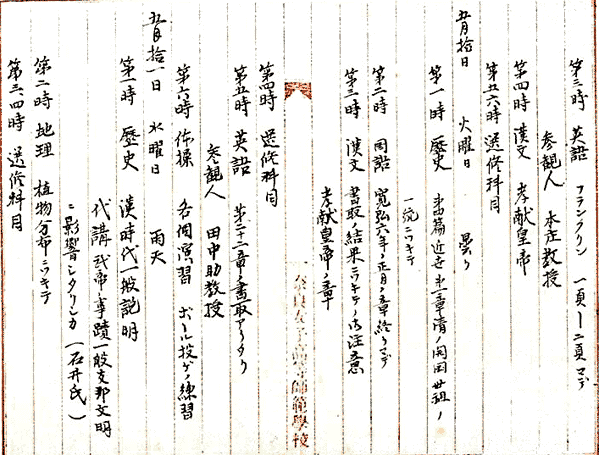 第三時 英語 フランクリン 一頁ー二頁マデ
参観人 本庄教授
第四時 漢文 孝献皇帝
第五六時 選修科目
五月拾日 火曜日 曇り
第一時 歴史 第四篇近世第一章清ノ開国世祖ノ
一統ニツキテ
第二時 国語 寛弘六年ノ正月ノ章終リマデ
第三時 漢文 書取ノ結果ニツキテノ御注意
孝献皇帝ノ章
奈良女子高等師範學校
第四時 選修科目
第五時 英語 第二十二章ノ書取アリタリ
参観人 田中助教授
第六時 体操 各個演習 ボール投ゲノ練習
五月拾一日 水曜日 雨天
第一時 歴史 漢時代一般説明
代講 武帝ノ事蹟一般支那文明
ニ影響シタリシカ (石井氏)
第二時 地理 植物分布ニツキテ
第三四時 選修科目